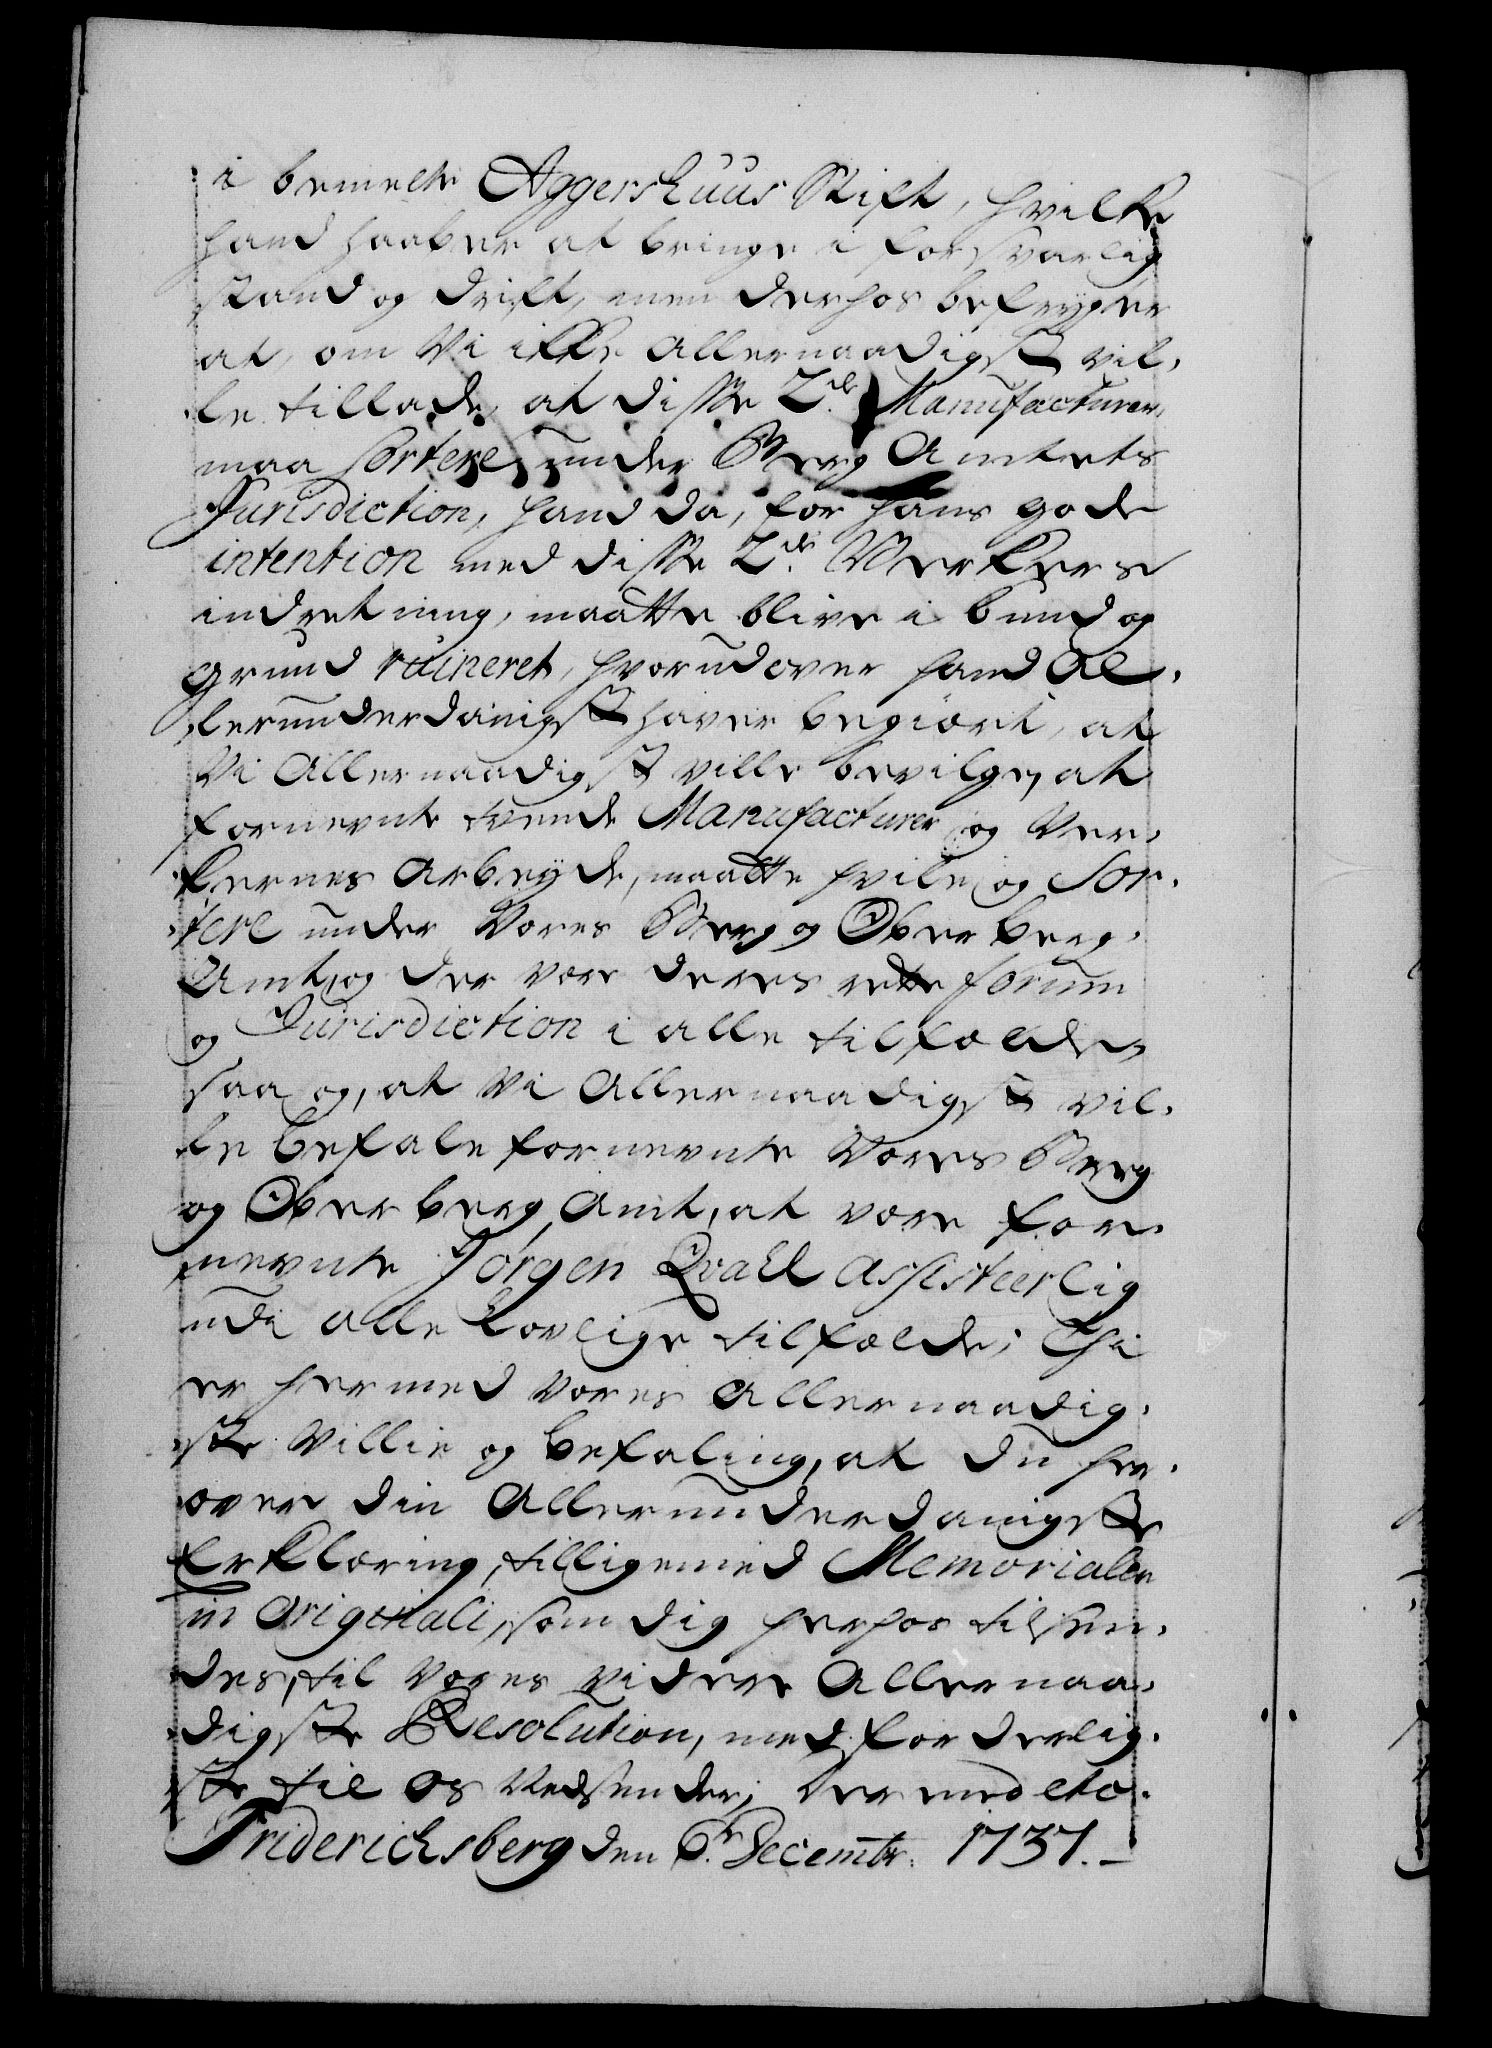 i bemelte Aggershuus Stift, hvilke
hand haaber at bringe i forsvarlig
stand og drift, men derhos befrygter
at, om Vi icke allernaadigst vil-
le tillade, at disse 2de Manufacturer,
maa sortere under Berg Amtets
Jurisdiction, hand da, for hans gode
intention med disse 2de Werckers
indretning, maatte blive i bund og
grund ruineret, hvorudover hand Al-
lerunderdanigst haver begiært, at
Vi Allernaadigst ville bevilge, at
fornevnte tvende Manufacturer og Ver-
kernes Arbeyde, maatte hvile og Sor-
tere under Vores Berg og Ober berg-
Amt, og der være deres rette forum
og Jurisdiction i alle tilfælde,
saa og, at Vi Allernaadigst vil-
le befale fornevnte Vores Berg
og Ober berg Amt, at være for-
nevnte Jørgen Qvall assisteerlig
udi alle lovlige tilfælde; Thi
er hermed Vores Allernaadig-
ste Villie og befaling, at du her-
over din Allerunderdanigste
Erklæring, tilligemed Memorialen
in Originali, som dig herhos tilsen-
des, til Vores videre Allernaa-
digste Resolution, med forderlig-
ste til Os Nedsender; Dermed etc.
Friderichsberg den 6te Decembr. 1737.